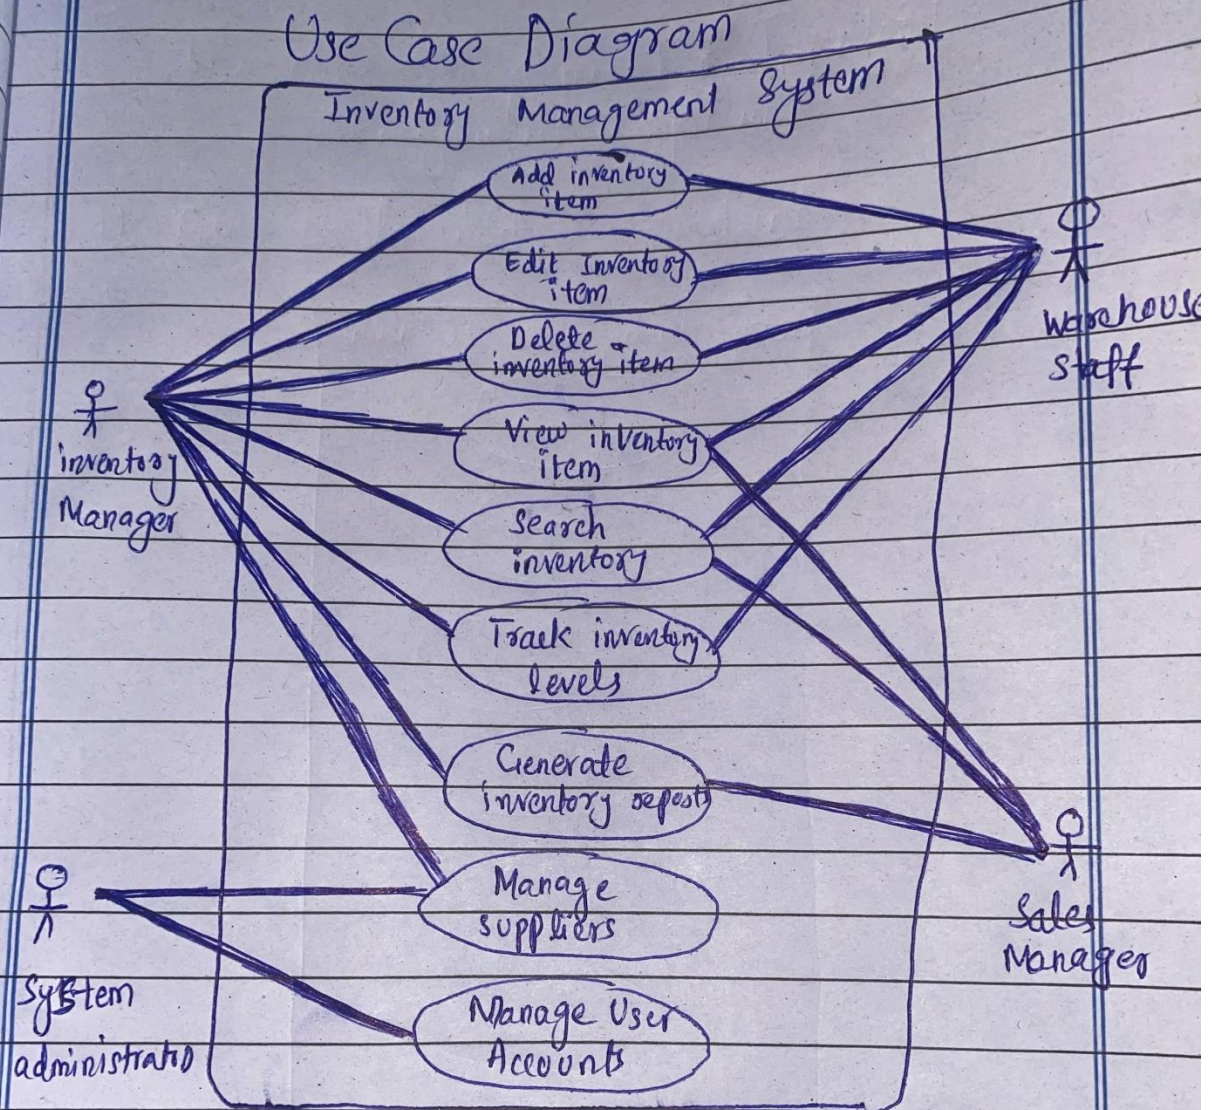 Use Case Diagram
Inventory Management System
Add inventory
item
Edit Inventory
item
Delete
inventory item
View inventory
item
Search
inventory
Track inventory
levels
Generate
inventory reports
Manage
suppliers
Manage User
Accounts
inventory
Manager
System
administrator
Warehouse
Staff
Sales
Manager